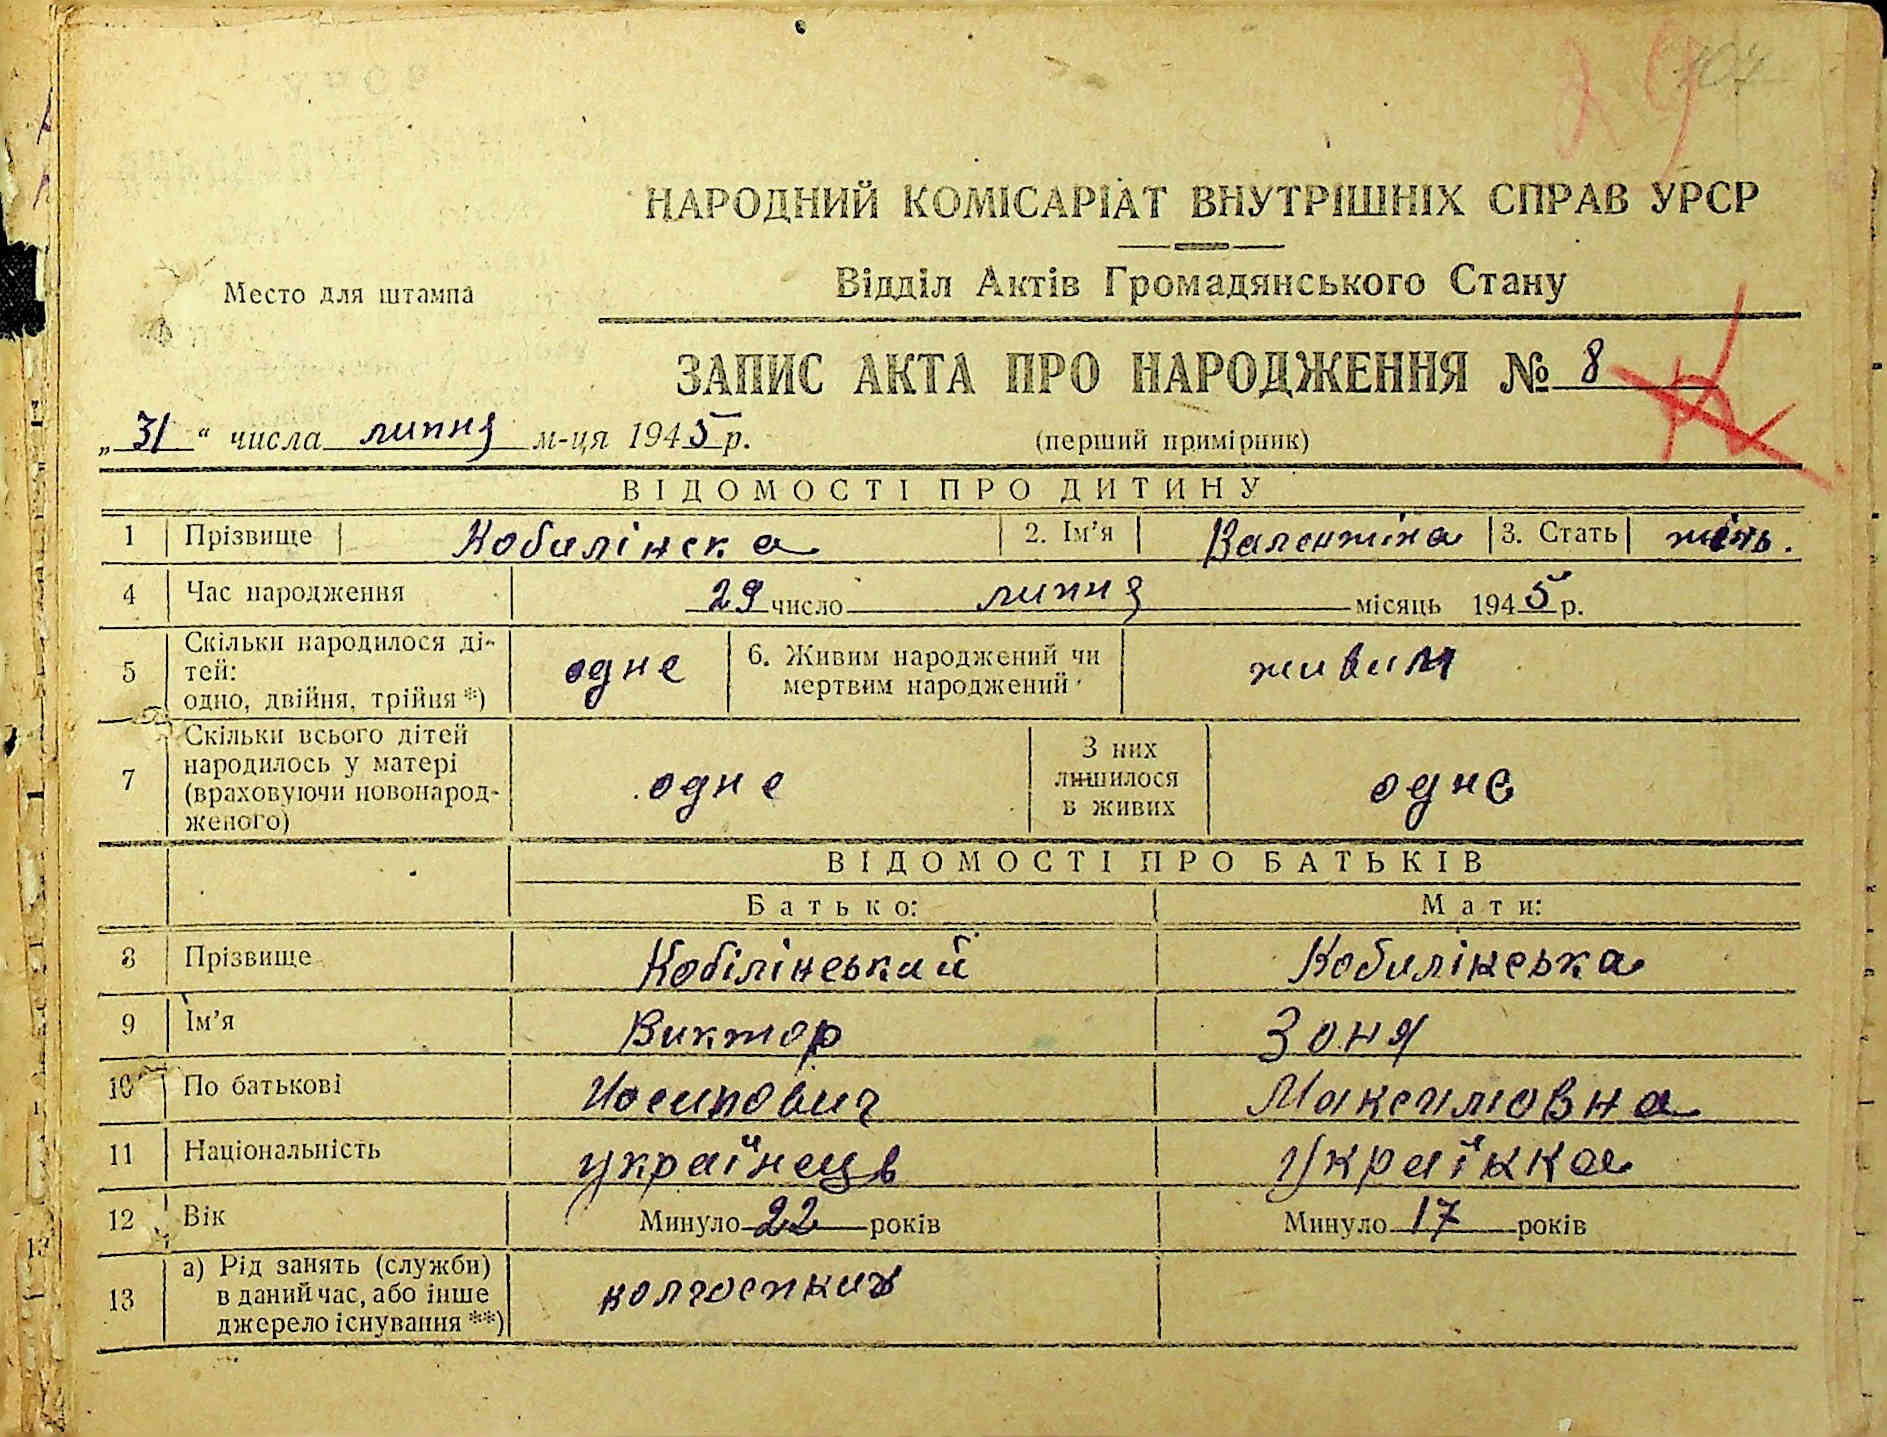 29 104
НАРОДНИЙ КОМІСАРІАТ ВНУТРІШНІХ СПРАВ УРСР
Відділ Актів Громадянського Стану
Место для штампа
ЗАПИС АКТА ПРО НАРОДЖЕННЯ № 8
„31“ числа липня м-ця 1945 р.
(перший примірник)
ВІДОМОСТІ ПРО ДИТИНУ
1 Прізвище Кобилінска 2. Ім'я Валентіна 3. Стать жінь.
4 Час народження 29 число липня місяць 1945 р.
5 Скільки народилося ді-
тей:
одно, двійня, трійня *) одне 6. Живим народжений чи
мертвим народжений живим
7 Скільки всього дітей
народилось у матері
(враховуючи новонарод-
женого) одне З них
лишилося
в живих одне
ВІДОМОСТІ ПРО БАТЬКІВ
Батько: Мати:
8 Прізвище Кобілінський Кобилінська
9 Ім'я Виктор Зоня
10 По батькові Иосипович Максимовна
11 Національність українець Українка
12 Вік Минуло 22 років Минуло 17 років
13 а) Рід занять (служби)
в даний час, або інше
джерело існування **) колгоспник